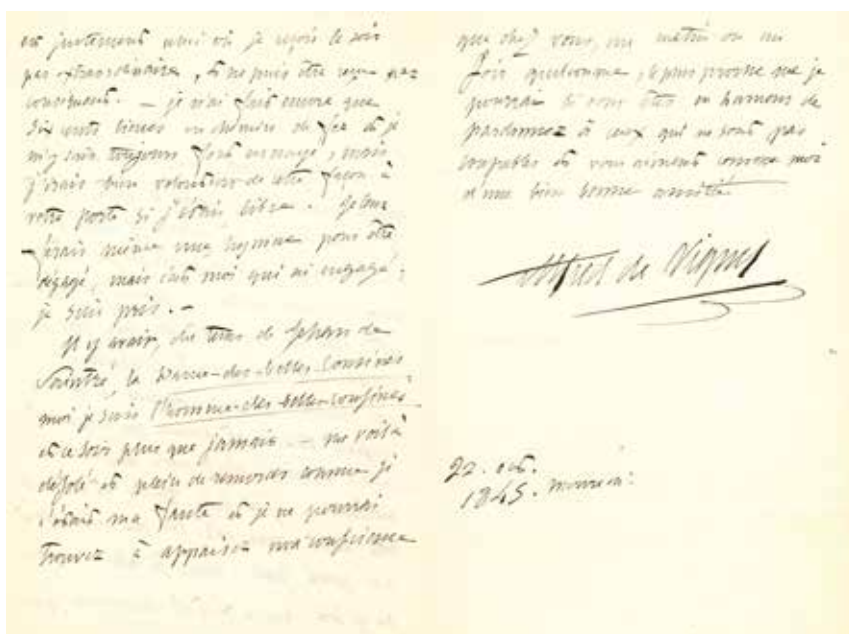 est justement celui où je reçois le soir
par extraordinaire, et ne puis être reçu par
conséquent. — je n'ai fait encore que
six cents lieues en chemin de fer et je
m'y suis toujours fort ennuyé, mais
j'irais bien volontiers de cette façon à
votre porte si j'étais libre.
j'irais même pour être
dégagé, mais c'est moi qui ai engagé,
je suis pris. —
Il y avait, du tems de Jehan de
Saintré, la Dame-des-belles-Cousines
moi je suis l'homme-des-belles-cousines
et ce soir plus que jamais — me voilà
désolé et plein de remords comme si
c'était ma faute et je ne pourrai
trouver à appaiser ma conscience
que chez vous, un matin ou un
soir quelconque, le plus proche que je
pourrai si vous êtes en humeur de
pardonner à ceux qui ne sont pas
coupables et vous aiment comme moi
d'une bien bonne amitié.
Alfred de Vigny
22. oct.
1845.